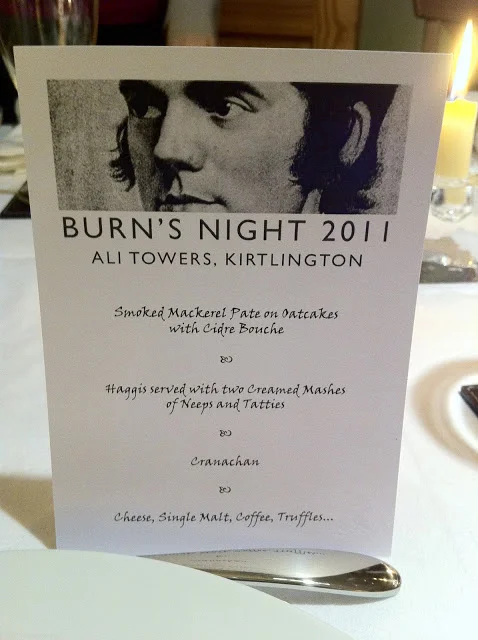 BURN'S NIGHT 2011
ALI TOWERS, KIRTLINGTON
Smoked Mackerel Pate on Oatcakes
with Cidre Bouche
Haggis served with two Creamed Mashes
of Neeps and Tatties
Cranachan
Cheese, Single Malt, Coffee, Truffles...